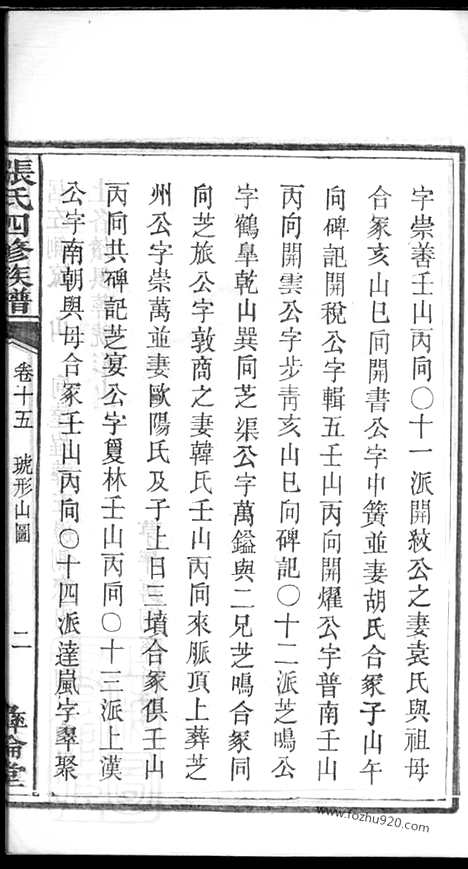 字崇善壬山丙向〇十一派開紋公之妻袁氏與祖母
合冢亥山巳向開書公字中簧並妻胡氏合冢子山午
向碑記開稅公字輯五壬山丙向開燿公字普南壬山
丙向開雲公字步青亥山巳向碑記〇十二派芝鳴公
字鶴皐乾山巽向芝渠公字萬鎰與二兄芝鳴合冢同
向芝旅公字敦商之妻韓氏壬山丙向來脈頂上葬芝
州公字崇萬並妻歐陽氏及子上日三墳合冢俱壬山
丙向共碑記芝宴公字夏林壬山丙向〇十三派上漢
公字南朝與母合冢壬山丙向〇十四派達嵐字羣聚
張氏四修族譜
卷十五
琥形山圖
二
彝倫堂
www.fozhu920.com